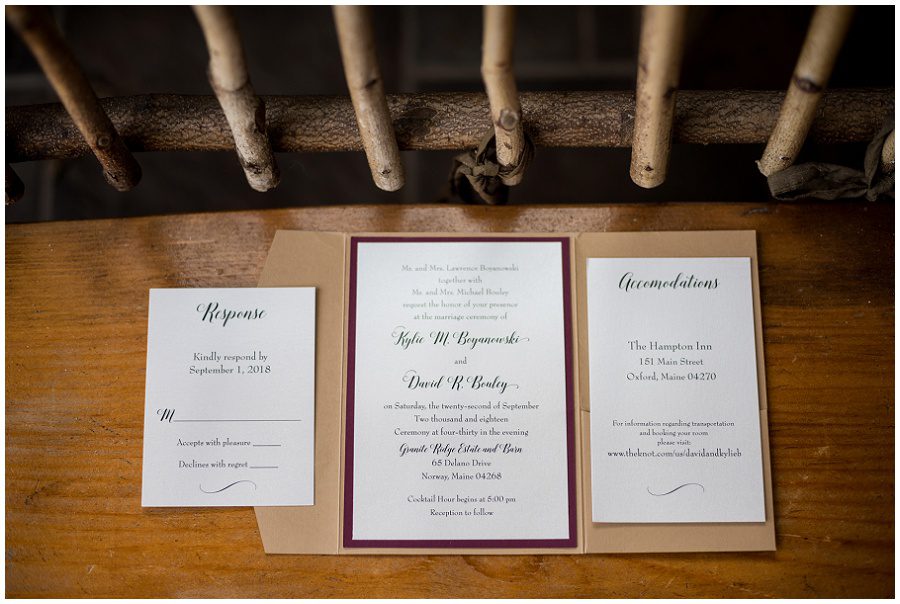 Response
Kindly respond by
September 1, 2018
M
Accepts with pleasure
Declines with regret
Mr. and Mrs. Lawrence Boyanowski
together with
Mr. and Mrs. Michael Bouley
request the honor of your presence
at the marriage ceremony of
Kylie M. Boyanowski
and
David R. Bouley
on Saturday, the twenty-second of September
Two thousand and eighteen
Ceremony at four-thirty in the evening
Granite Ridge Estate and Barn
65 Delano Drive
Norway, Maine 04268
Cocktail Hour begins at 5:00 pm
Reception to follow
Accomodations
The Hampton Inn
151 Main Street
Oxford, Maine 04270
For information regarding transportation
and booking your room
please visit:
www.theknot.com/us/davidandkylieb